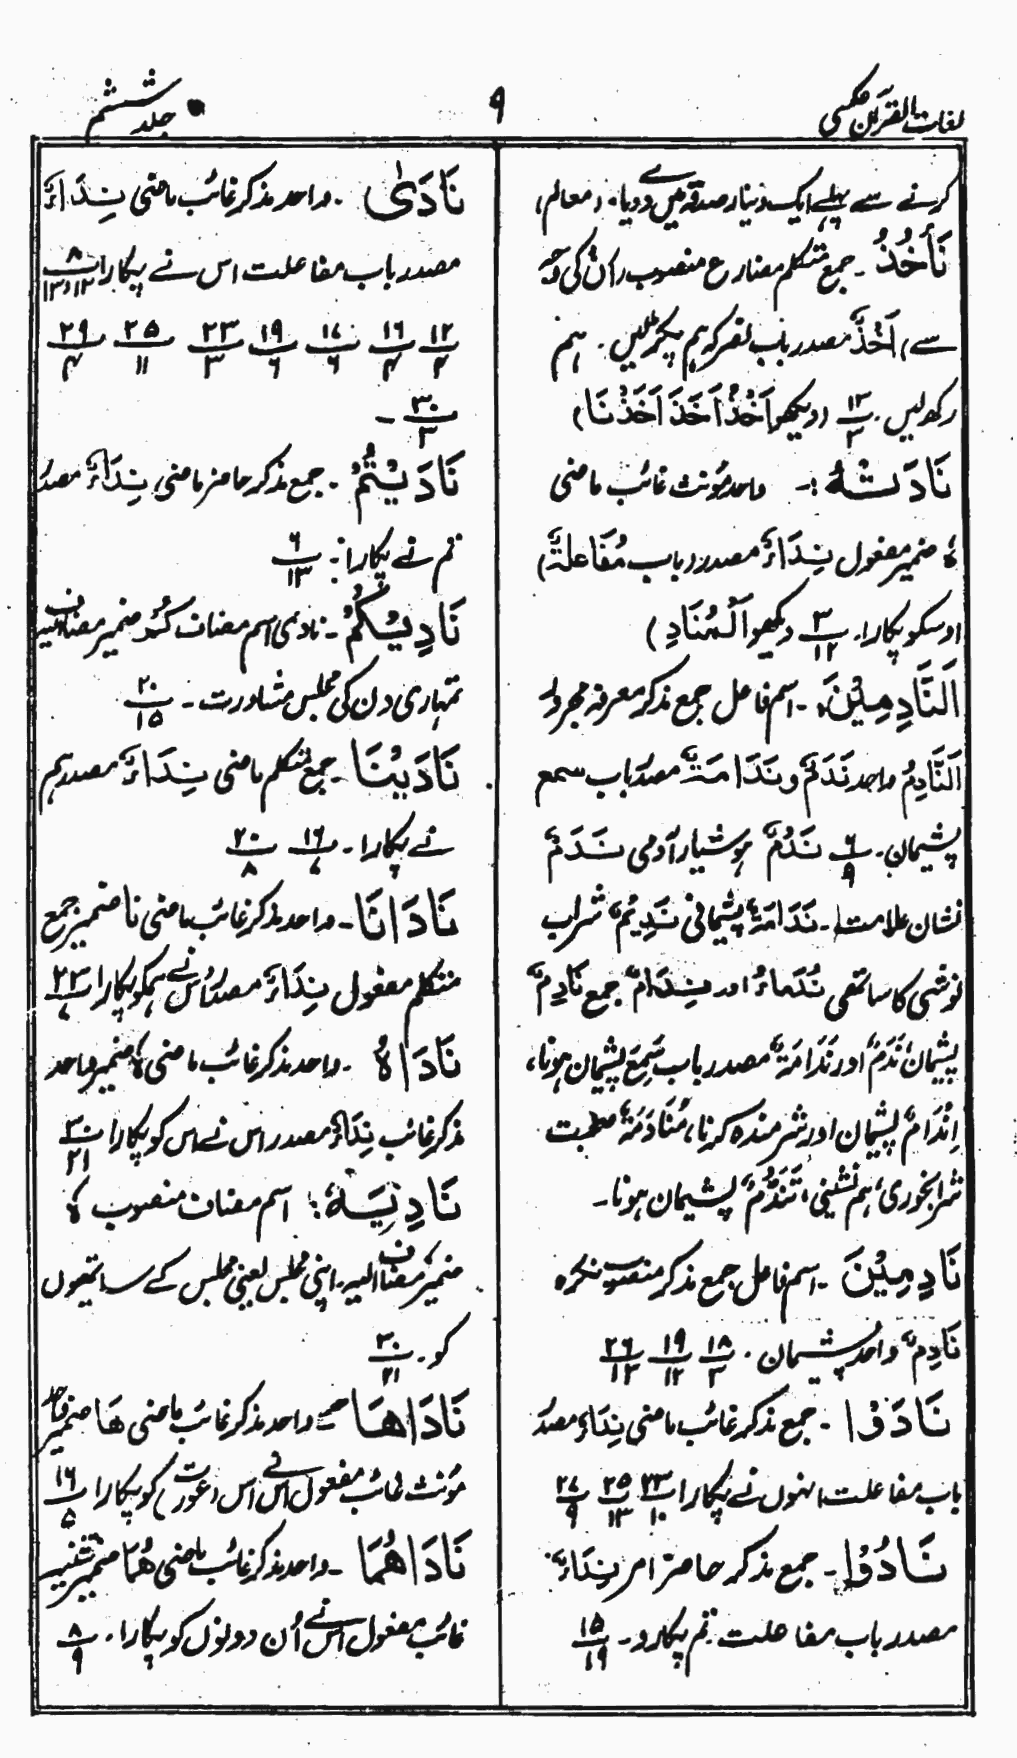 لغات القرآن عکسی
۹
جلد ششم
کرنے سے پہلے ایک دینار صدقہ میں دے دیا۔ (معالم)
نَأْخُذُ ۔ جمع متکلم مضارع منصوب (اَنْ کی وجہ
سے) اَخْذٌ مصدر باب نصر کہ ہم پکڑ لیں۔ ہم
رکھ لیں۔ ۱۲/۳ (دیکھو اَخْذٌ اَخَذَ اَخَذْنَا)
نَادَتْهُ :۔ واحد مؤنث غائب ماضی
هٗ ضمیر مفعول نِدَاءٌ مصدر (باب مُفَاعَلَة)
اوسکو پکارا۔ ۳/۱۲ دیکھو اَلْمُنَادِ )
اَلنَّادِمِیْنَ ۔ اسم فاعل جمع مذکر معرفہ مجرور
اَلنَّادِمُ واحد نَدَمٌ و نَدَامَةٌ مصدر باب سمع
پشیمان۔ ۶/۹ نَدْمٌ ہوشیار آدمی نَدَمٌ
نشان علامت۔ نَدَامَةٌ پشیمانی نَدِیْمٌ شراب
نوشی کا ساتھی نُدَمَاءُ اور نِدَامٌ جمع نَادِمٌ
پشیمان نَدَمٌ اور نَدَامَةٌ مصدر باب سَمِعَ پشیمان ہونا،
اِنْدَامٌ پشیمان اور شرمندہ کرنا، مُنَادَمَةٌ صحبت
شرابخوری، ہم نشینی، تَنَدُّمٌ پشیمان ہونا۔
نَادِمِیْنَ ۔ اسم فاعل جمع مذکر منصوب نکرہ
نَادِمٌ واحد پشیمان ۔ ۱۸/۳ ۱۹/۱۲ ۲۶/۱۳
نَادَوْا ۔ جمع مذکر غائب ماضی نِدَاءٌ مصدر
باب مفاعلت انہوں نے پکارا ۲۳/۱۰ ۲۵/۱۳ ۲۷/۹
نَادُوْا ۔ جمع مذکر حاضر امر نِدَاءٌ
مصدر باب مفاعلت ۔ تم پکارو۔ ۱۵/۱۹
نَادٰى ۔ واحد مذکر غائب ماضی نِدَاءٌ
مصدر باب مفاعلت اس نے پکارا ۸/۱۲،۱۳
۱۲/۴ ۱۶/۴ ۱۷/۶ ۱۹/۶ ۲۳/۳ ۲۵/۱۱ ۲۹/۴
۳۰/۳ ۔
نَادَیْتُمْ ۔ جمع مذکر حاضر ماضی، نِدَاءٌ مصدر
تم نے پکارا :۔ ۶/۱۳
نَادِیْکُمْ ۔ نادی اسم مضاف کُمْ ضمیر مضاف الیہ
تمہاری دن کی مجلس مشاورت ۔ ۲۰/۱۵
نَادَیْنَا ۔ جمع متکلم ماضی نِدَاءٌ مصدر ہم
نے پکارا ۔ ۱۶/۷ ۲۰/۸
نَادَانَا ۔ واحد مذکر غائب ماضی نا ضمیر جمع
متکلم مفعول نِدَاءٌ مصدر اس نے ہمکو پکارا ۲۳/۷
نَادَاهُ ۔ واحد مذکر غائب ماضی هٗ ضمیر واحد
مذکر غائب نِدَاءٌ مصدر اس نے اس کو پکارا ۳۰/۲۱
نَادِیَهٗ :۔ اسم مضاف منصوب هٗ
ضمیر مضاف الیہ۔ اپنی مجلس یعنی مجلس کے ساتھیوں
کو ۔ ۳۰/۲۱
نَادَاهَا ۔ واحد مذکر غائب ماضی هَا ضمیر واحد
مؤنث غائب مفعول اس نے اس (عورت) کو پکارا ۱۶/۵
نَادَاهُمَا ۔ واحد مذکر غائب ماضی هُمَا ضمیر تثنیہ
غائب مفعول اس نے اُن دونوں کو پکارا ۔ ۸/۹